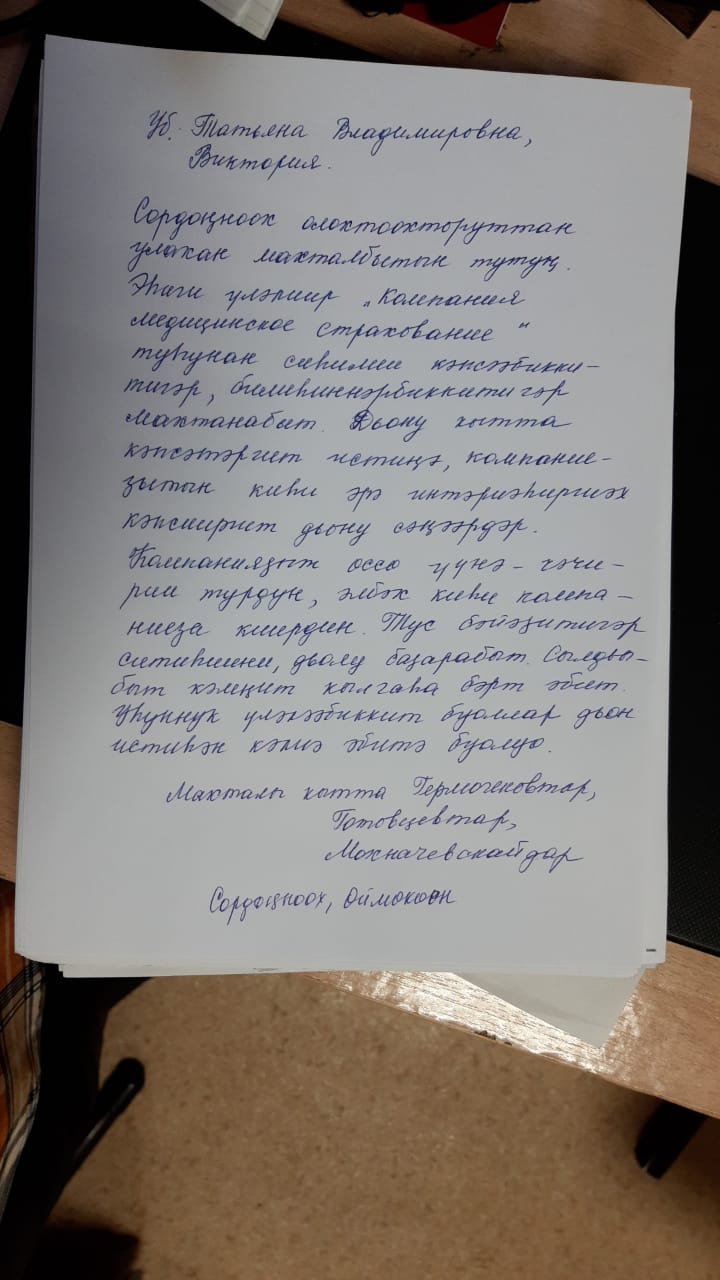 Уб. Татьяна Владимировна,
Виктория.
Сордоҥноох олохтоохторуттан
улахан махталбытын тутуҥ.
Эһиги үлэлиир „Компания
медицинское страхование"
туһунан сиһилии кэпсээбикки-
тигэр, билиһиннэрбиккитигэр
махтанабыт. Дьону кытта
кэпсэтэргит истиҥэ, компание-
ҕытын киһи эрэ интэриэһиргиэх
кэпсииргит дьону сэҥээрдэр.
Компанияҕыт оссо үүнэ-чэчи-
рии турдун, элбэх киһи компа-
нияҕа киирдин. Тус бэйэҕитигэр
ситиһиини, дьолу баҕарабыт. Сылдьы-
быт кэмҥит кылгаһа бэрт эбит.
Уһуннук үлэлээбиккит буоллар дьон
истиһэн кэлиэ эбитэ буолуо.
Махталы кытта Гермогеновтар,
Готовцевтар,
Мохначевскайдар
Сордоҥноох, Оймокоон